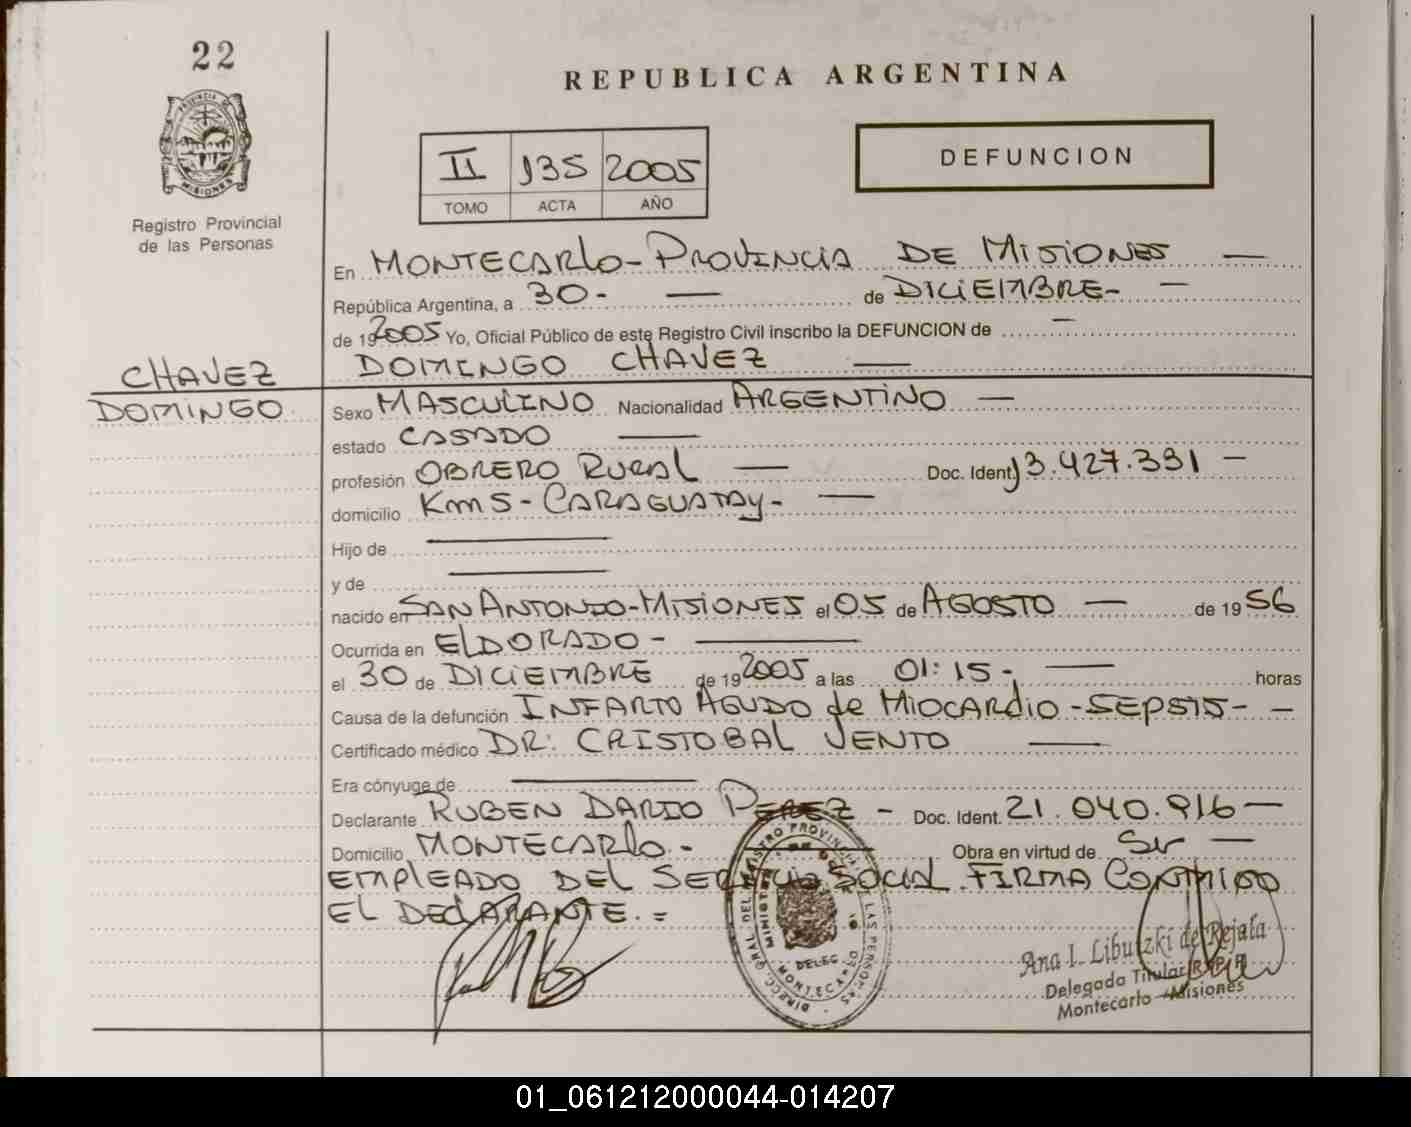 22
REPUBLICA ARGENTINA
II 135 2005
TOMO ACTA AÑO
DEFUNCION
PROVINCIA DE
MISIONES
Registro Provincial
de las Personas
En MONTECARLO - PROVINCIA DE MISIONES —
República Argentina, a 30 - — de DICIEMBRE - —
de 192005 Yo, Oficial Público de este Registro Civil inscribo la DEFUNCION de —
CHAVEZ DOMINGO CHAVEZ —
DOMINGO Sexo MASCULINO Nacionalidad ARGENTINO —
estado CASADO —
profesión OBRERO RURAL — Doc. Ident. 13.427.331 —
domicilio Km 5 - CARAGUATAY - —
Hijo de —
y de —
nacido en SAN ANTONIO - MISIONES el 05 de AGOSTO — de 19 56
Ocurrida en ELDORADO - —
el 30 de DICIEMBRE de 192005 a las 01:15 - — horas
Causa de la defunción INFARTO AGUDO de MIOCARDIO - SEPSIS - —
Certificado médico DR: CRISTOBAL VENTO —
Era cónyuge de —
Declarante RUBEN DARIO PEREZ - Doc. Ident. 21.040.916 —
Domicilio MONTECARLO - Obra en virtud de Ser —
EMPLEADO DEL SERVICIO SOCIAL. FIRMA CONMIGO
EL DECLARANTE. =
DIRECC. GRAL. DEL REGISTRO PROVINCIAL DE LAS PERSONAS
DELEG.
MONTECARLO
Ana I. Libutzki de Rejala
Delegada Titular R.P.P.
Montecarlo - Misiones
01_061212000044-014207